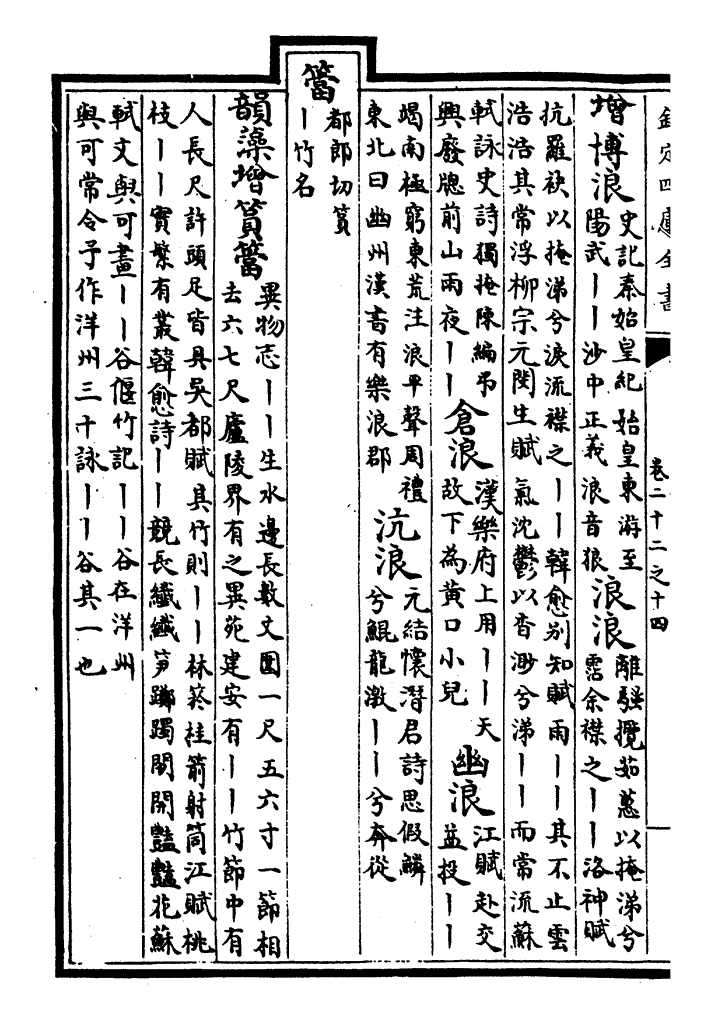 欽定四庫全書 卷二十二之十四
增博浪
史記秦始皇紀始皇東游至
陽武丨丨沙中正義浪音狼
浪浪
離騷攬茹蕙以掩涕兮
霑余襟之丨丨洛神賦
抗羅袂以掩涕兮淚流襟之丨丨韓愈别知賦雨丨丨其不止雲
浩浩其常浮柳宗元閔生賦氣沈鬱以杳渺兮涕丨丨而常流蘇
軾詠史詩獨掩陳編弔
興廢牎前山雨夜丨丨
倉浪
漢樂府上用丨丨天
故下為黄口小兒
幽浪
江賦赴交
益投丨丨
竭南極窮東荒注浪平聲周禮
東北曰幽州漢書有樂浪郡
沆浪
元結懷潛君詩思假鱗
兮鯤龍激丨丨兮奔從
簹
都郎切篔
丨竹名
韻藻增篔簹
異物志丨丨生水邊長數丈圍一尺五六寸一節相
去六七尺廬陵界有之異苑建安有丨丨竹節中有
人長尺許頭足皆具吳都賦其竹則丨丨林菸桂箭射筒江賦桃
枝丨丨實繁有叢韓愈詩丨丨競長纖纖笋躑躅閒開豔豔花蘇
軾文與可畫丨丨谷偃竹記丨丨谷在洋州
與可常令予作洋州三十詠丨丨谷其一也